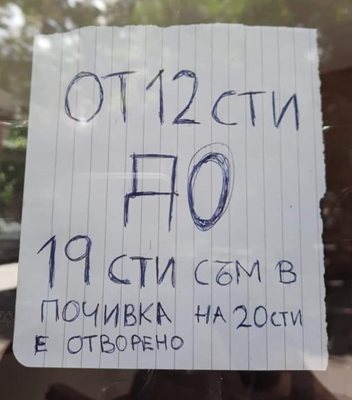 ОТ 12 СТИ
ДО
19 СТИ СЪМ В
ПОЧИВКА НА 20СТИ
Е ОТВОРЕНО